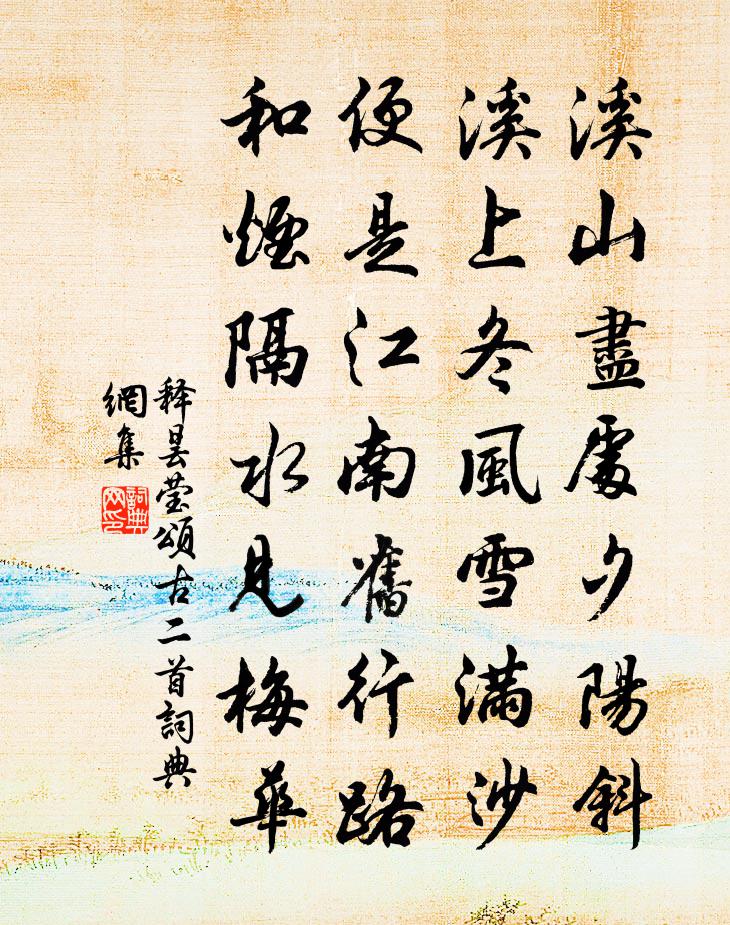 溪山盡處夕陽斜
溪上冬風雪滿沙
便是江南舊行路
和煙隔水見梅華
释昙莹頌古二首詞典
網集
詞典
网印